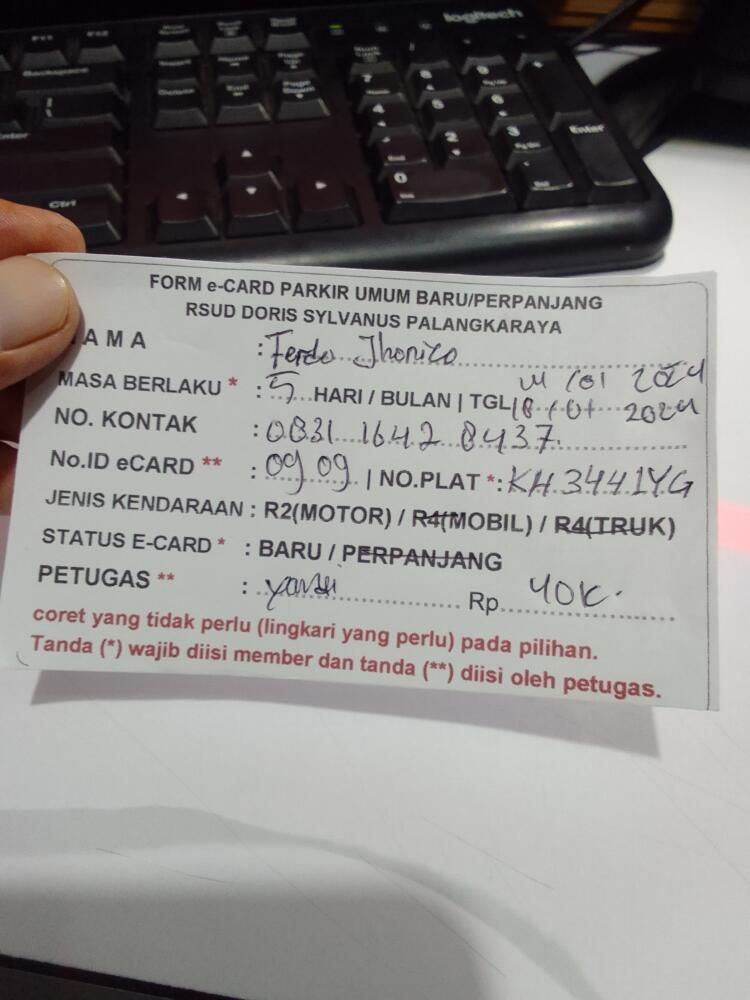 logitech
Backspace
Enter
Ctrl
Enter
FORM e-CARD PARKIR UMUM BARU/PERPANJANG
RSUD DORIS SYLVANUS PALANGKARAYA
AMA : Ferdo Jhonico
MASA BERLAKU * : 5 HARI / BULAN | TGL 14/01 2024
18/01 2024
NO. KONTAK : 0831 1642 8437
No.ID eCARD ** : 0909 | NO.PLAT *: KH 3441YG
JENIS KENDARAAN : R2(MOTOR) / R4(MOBIL) / R4(TRUK)
STATUS E-CARD * : BARU / PERPANJANG
PETUGAS ** : Rp. 40K.
coret yang tidak perlu (lingkari yang perlu) pada pilihan.
Tanda (*) wajib diisi member dan tanda (**) diisi oleh petugas.